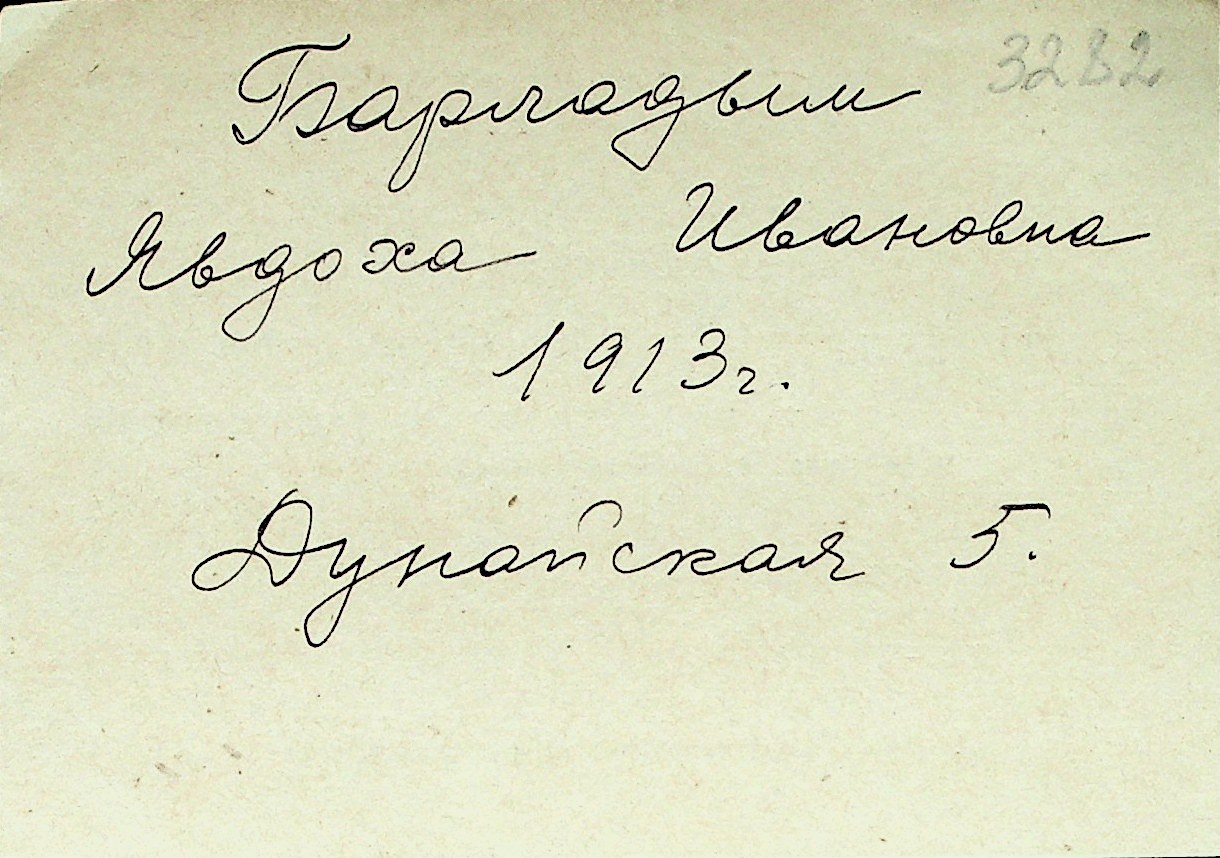 3282
Барладым
Явдоха Ивановна
1913г.
Дунайская 5.